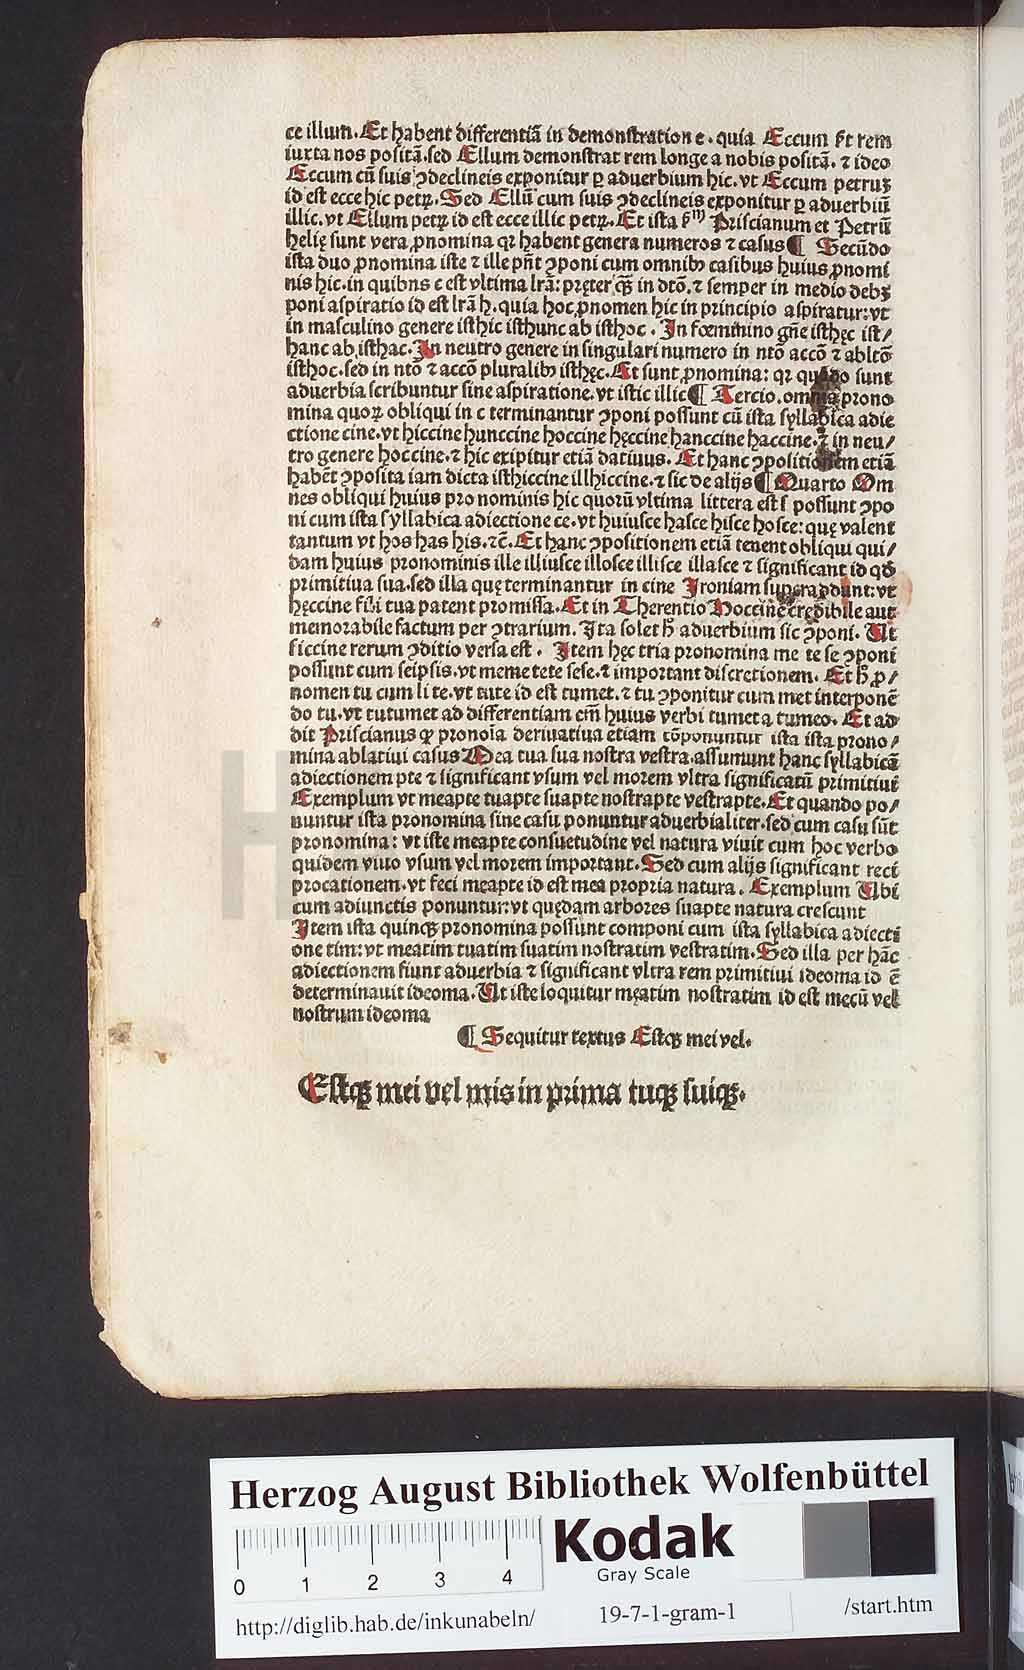 ce illum. Et habent differentiã in demonstratione. quia Eccum fit rem
iuxta nos positã. sed Ellum demonstrat rem longe a nobis positã. ⁊ ideo
Eccum cũ suis ꝯdeclineis exponitur ꝑ aduerbium hic. vt Eccum petrus
id est ecce hic petrꝰ. Sed Ellũ cum suis ꝯdeclineis exponitur ꝑ aduerbiũ
illic. vt Ellum petrꝫ id est ecce illic petrꝫ. Et ista ẜm Priscianum et Petrũ
helię sunt vera ꝓnomina qꝛ habent genera numeros ⁊ casus ¶ Secũdo
ista duo ꝓnomina iste ⁊ ille pñt ꝯponi cum omnibꝰ casibus huius ꝓnomi
nis hic. in quibns c est vltima lr̃a: pręter qꝫ̃ in dtõ. ⁊ semper in medio debꝫ
poni aspiratio id est lr̃a h. quia hoc ꝓnomen hic in principio aspiratur: vt
in masculino genere isthic isthunc ab isthoc. In fœminino gñe isthęc ist/
hanc ab isthac. In neutro genere in singulari numero in ntõ accõ ⁊ abltõ
isthoc. sed in ntõ ⁊ accõ pluralibꝰ isthęc. Et sunt ꝓnomina: qꝛ quãdo sunt
aduerbia scribuntur sine aspiratione. vt istic illic ¶ Tercio. omnia prono
mina quoꝝ obliqui in c terminantur ꝯponi possunt cũ ista syllabica adie
ctione cine. vt hiccine hunccine hoccine hęccine hanccine haccine. ⁊ in neu/
tro genere hoccine. ⁊ hic excipitur etiã datiuus. Et hanc ꝯpositionem etiã
habẽt ꝯposita iam dicta isthiccine illhiccine. ⁊ sic de alijs ¶ Quarto Om
nes obliqui huius pro nominis hic quorũ vltima littera est s possunt ꝯpo
ni cum ista syllabica adiectione ce. vt huiusce hasce hisce hosce: quę valent
tantum vt hos has his. ⁊c̃. Et hanc ꝯpositionem etiã tenent obliqui qui/
dam huius pronominis ille illiusce illosce illisce illasce ⁊ significant id qđ
primitiua sua. sed illa quę terminantur in cine Ironiam superaddunt: vt
hęccine fili tua patent promissa. Et in Therentio Hoccine credibile aut
memorabile factum per ꝯtrarium. Ita solet h̃ aduerbium sic ꝯponi. Ut
siccine rerum ꝯditio versa est. Item hęc tria pronomina me te se ꝯponi
possunt cum seipsis. vt meme tete sese. ⁊ important discretionem. Et h̃ ꝓ/
nomen tu cum li te. vt tute id est tumet. ⁊ tu ꝯponitur cum met interponẽ
do tu. vt tutumet ad differentiam cm̃ huius verbi tumet a tumeo. Et ad
dit Priscianus ꝙ pronoĩa deriuatiua etiam cõponuntur ista ista prono/
mina ablatiui casus Mea tua sua nostra vestra. assumunt hanc syllabicã
adiectionem pte ⁊ significant vsum vel morem vltra significatũ primitiui
Exemplum vt meapte tuapte suapte nostrapte vestrapte. Et quando po/
nuntur ista pronomina sine casu ponuntur aduerbialiter. sed cum casu sũt
pronomina: vt iste meapte consuetudine vel natura viuit cum hoc verbo
quidem viuo vsum vel morem important. Sed cum alijs significant reci
procationem. vt feci meapte id est mea propria natura. Exemplum Ubi
cum adiunctis ponuntur: vt quędam arbores suapte natura crescunt
Item ista quinqꝫ pronomina possunt componi cum ista syllabica adiecti
one tim: vt meatim tuatim suatim nostratim vestratim. Sed illa per hãc
adiectionem fiunt aduerbia ⁊ significant vltra rem primitiui ideoma id ẽ
determinauit ideoma. Ut iste loquitur meatim nostratim id est mecũ vel
nostrum ideoma
¶ Sequitur textus Estqꝫ mei vel.
Estqꝫ mei vel mis in prima tuqꝫ suiqꝫ.
Herzog August Bibliothek Wolfenbüttel
0 1 2 3 4
Kodak
Gray Scale
http://diglib.hab.de/inkunabeln/ 19-7-1-gram-1 /start.htm